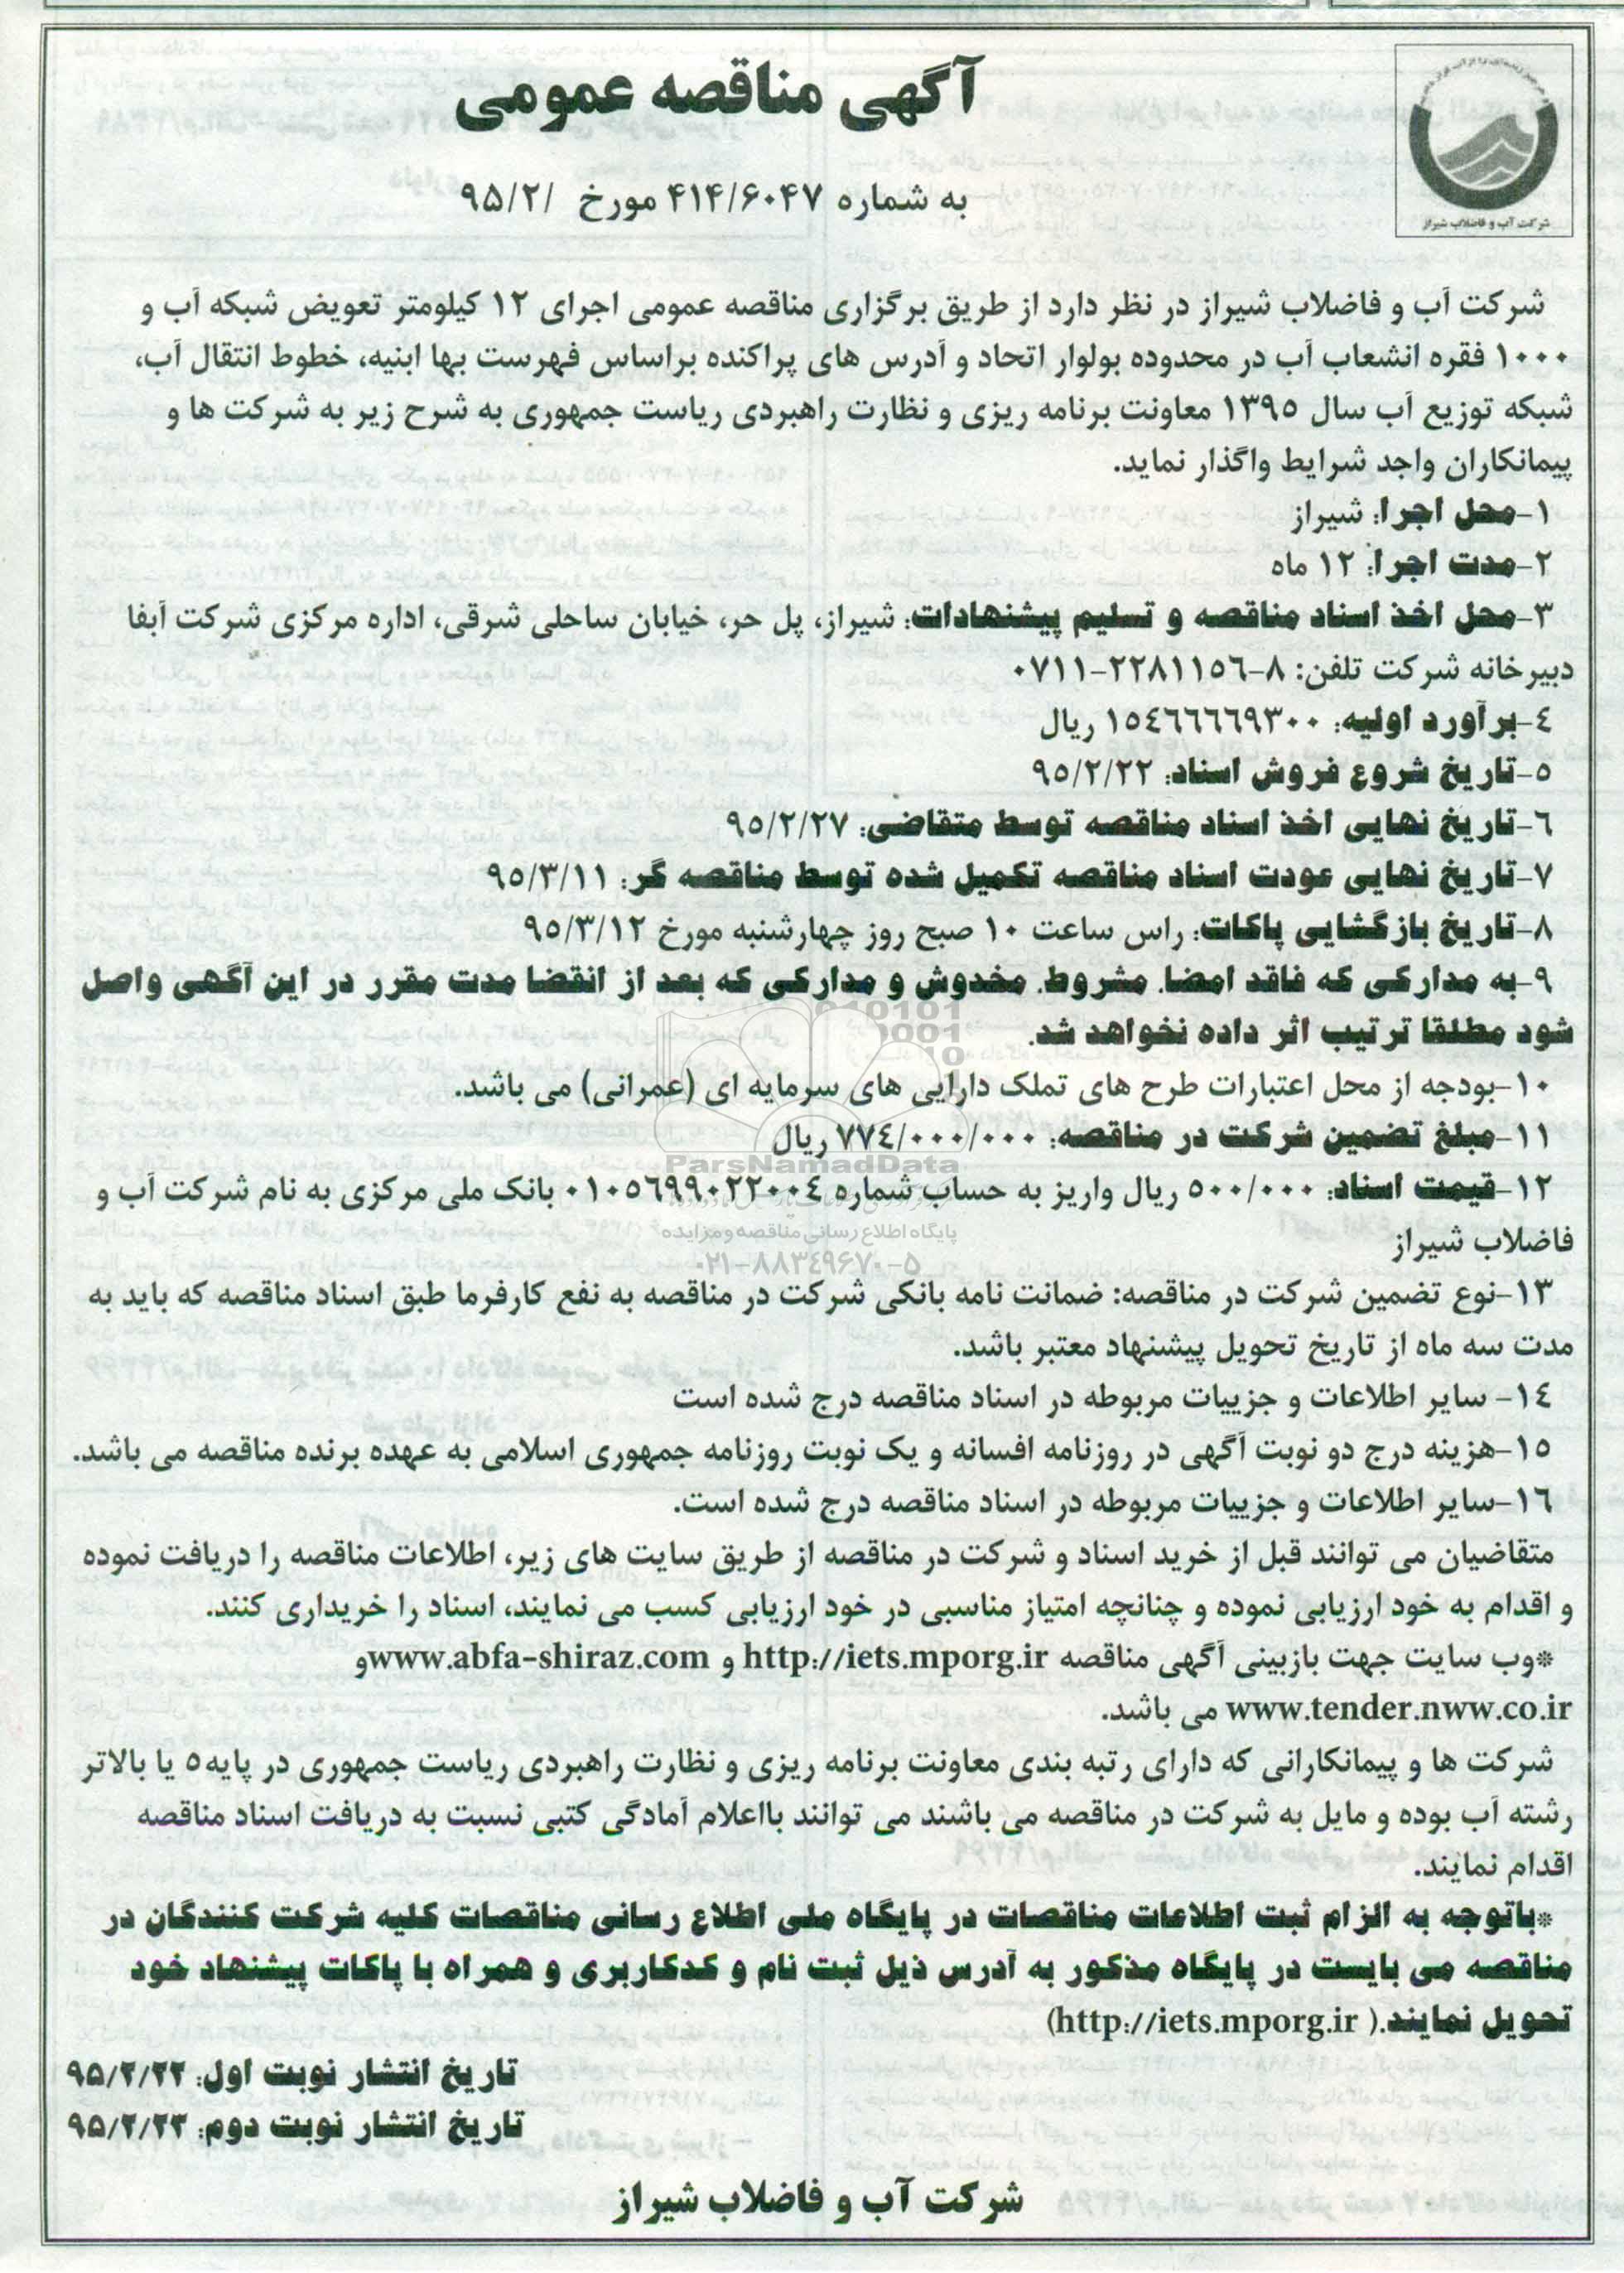 آگهی مناقصه عمومی
به شماره ۴۱۴/۶۰۴۷ مورخ /۹۵/۲
شرکت آب و فاضلاب شیراز
شرکت آب و فاضلاب شیراز در نظر دارد از طریق برگزاری مناقصه عمومی اجرای ۱۲ کیلومتر تعویض شبکه آب و
۱۰۰۰ فقره انشعاب آب در محدوده بولوار اتحاد و آدرس های پراکنده براساس فهرست بها ابنیه، خطوط انتقال آب،
شبکه توزیع آب سال ۱۳۹۵ معاونت برنامه ریزی و نظارت راهبردی ریاست جمهوری به شرح زیر به شرکت ها و
پیمانکاران واجد شرایط واگذار نماید.
۱-محل اجرا: شیراز
۲-مدت اجرا: ۱۲ ماه
۳-محل اخذ اسناد مناقصه و تسلیم پیشنهادات: شیراز، پل حر، خیابان ساحلی شرقی، اداره مرکزی شرکت آبفا
دبیرخانه شرکت تلفن: ۸-۲۲۸۱۱۵۶-۰۷۱۱
۴-برآورد اولیه: ۱۵۴۶۶۶۶۹۳۰۰ ریال
۵-تاریخ شروع فروش اسناد: ۹۵/۲/۲۲
۶-تاریخ نهایی اخذ اسناد مناقصه توسط متقاضی: ۹۵/۲/۲۷
۷-تاریخ نهایی عودت اسناد مناقصه تکمیل شده توسط مناقصه گر: ۹۵/۳/۱۱
۸-تاریخ بازگشایی پاکات: راس ساعت ۱۰ صبح روز چهارشنبه مورخ ۹۵/۳/۱۲
۹-به مدارکی که فاقد امضا، مشروط، مخدوش و مدارکی که بعد از انقضا مدت مقرر در این آگهی واصل
شود مطلقا ترتیب اثر داده نخواهد شد.
۱۰-بودجه از محل اعتبارات طرح های تملک دارایی های سرمایه ای (عمرانی) می باشد.
۱۱-مبلغ تضمین شرکت در مناقصه: ۷۷۴/۰۰۰/۰۰۰ ریال
ParsNamadData
۱۲-قیمت اسناد: ۵۰۰/۰۰۰ ریال واریز به حساب شماره ۰۱۰۵۶۹۹۰۲۲۰۰۴ بانک ملی مرکزی به نام شرکت آب و
فاضلاب شیراز
پایگاه اطلاع رسانی مناقصه و مزایده
۰۲۱-۸۸۳۴۹۶۷۰-۵
۱۳-نوع تضمین شرکت در مناقصه: ضمانت نامه بانکی شرکت در مناقصه به نفع کارفرما طبق اسناد مناقصه که باید به
مدت سه ماه از تاریخ تحویل پیشنهاد معتبر باشد.
۱۴- سایر اطلاعات و جزییات مربوطه در اسناد مناقصه درج شده است
۱۵-هزینه درج دو نوبت آگهی در روزنامه افسانه و یک نوبت روزنامه جمهوری اسلامی به عهده برنده مناقصه می باشد.
۱۶-سایر اطلاعات و جزییات مربوطه در اسناد مناقصه درج شده است.
متقاضیان می توانند قبل از خرید اسناد و شرکت در مناقصه از طریق سایت های زیر، اطلاعات مناقصه را دریافت نموده
و اقدام به خود ارزیابی نموده و چنانچه امتیاز مناسبی در خود ارزیابی کسب می نمایند، اسناد را خریداری کنند.
*وب سایت جهت بازبینی آگهی مناقصه http://iets.mporg.ir و www.abfa-shiraz.comو
www.tender.nww.co.ir می باشد.
شرکت ها و پیمانکارانی که دارای رتبه بندی معاونت برنامه ریزی و نظارت راهبردی ریاست جمهوری در پایه۵ یا بالاتر
رشته آب بوده و مایل به شرکت در مناقصه می باشند می توانند بااعلام آمادگی کتبی نسبت به دریافت اسناد مناقصه
اقدام نمایند.
*باتوجه به الزام ثبت اطلاعات مناقصات در پایگاه ملی اطلاع رسانی مناقصات کلیه شرکت کنندگان در
مناقصه می بایست در پایگاه مذکور به آدرس ذیل ثبت نام و کدکاربری و همراه با پاکات پیشنهاد خود
تحویل نمایند.( http://iets.mporg.ir)
تاریخ انتشار نوبت اول: ۹۵/۲/۲۲
تاریخ انتشار نوبت دوم: ۹۵/۲/۲۳
شرکت آب و فاضلاب شیراز